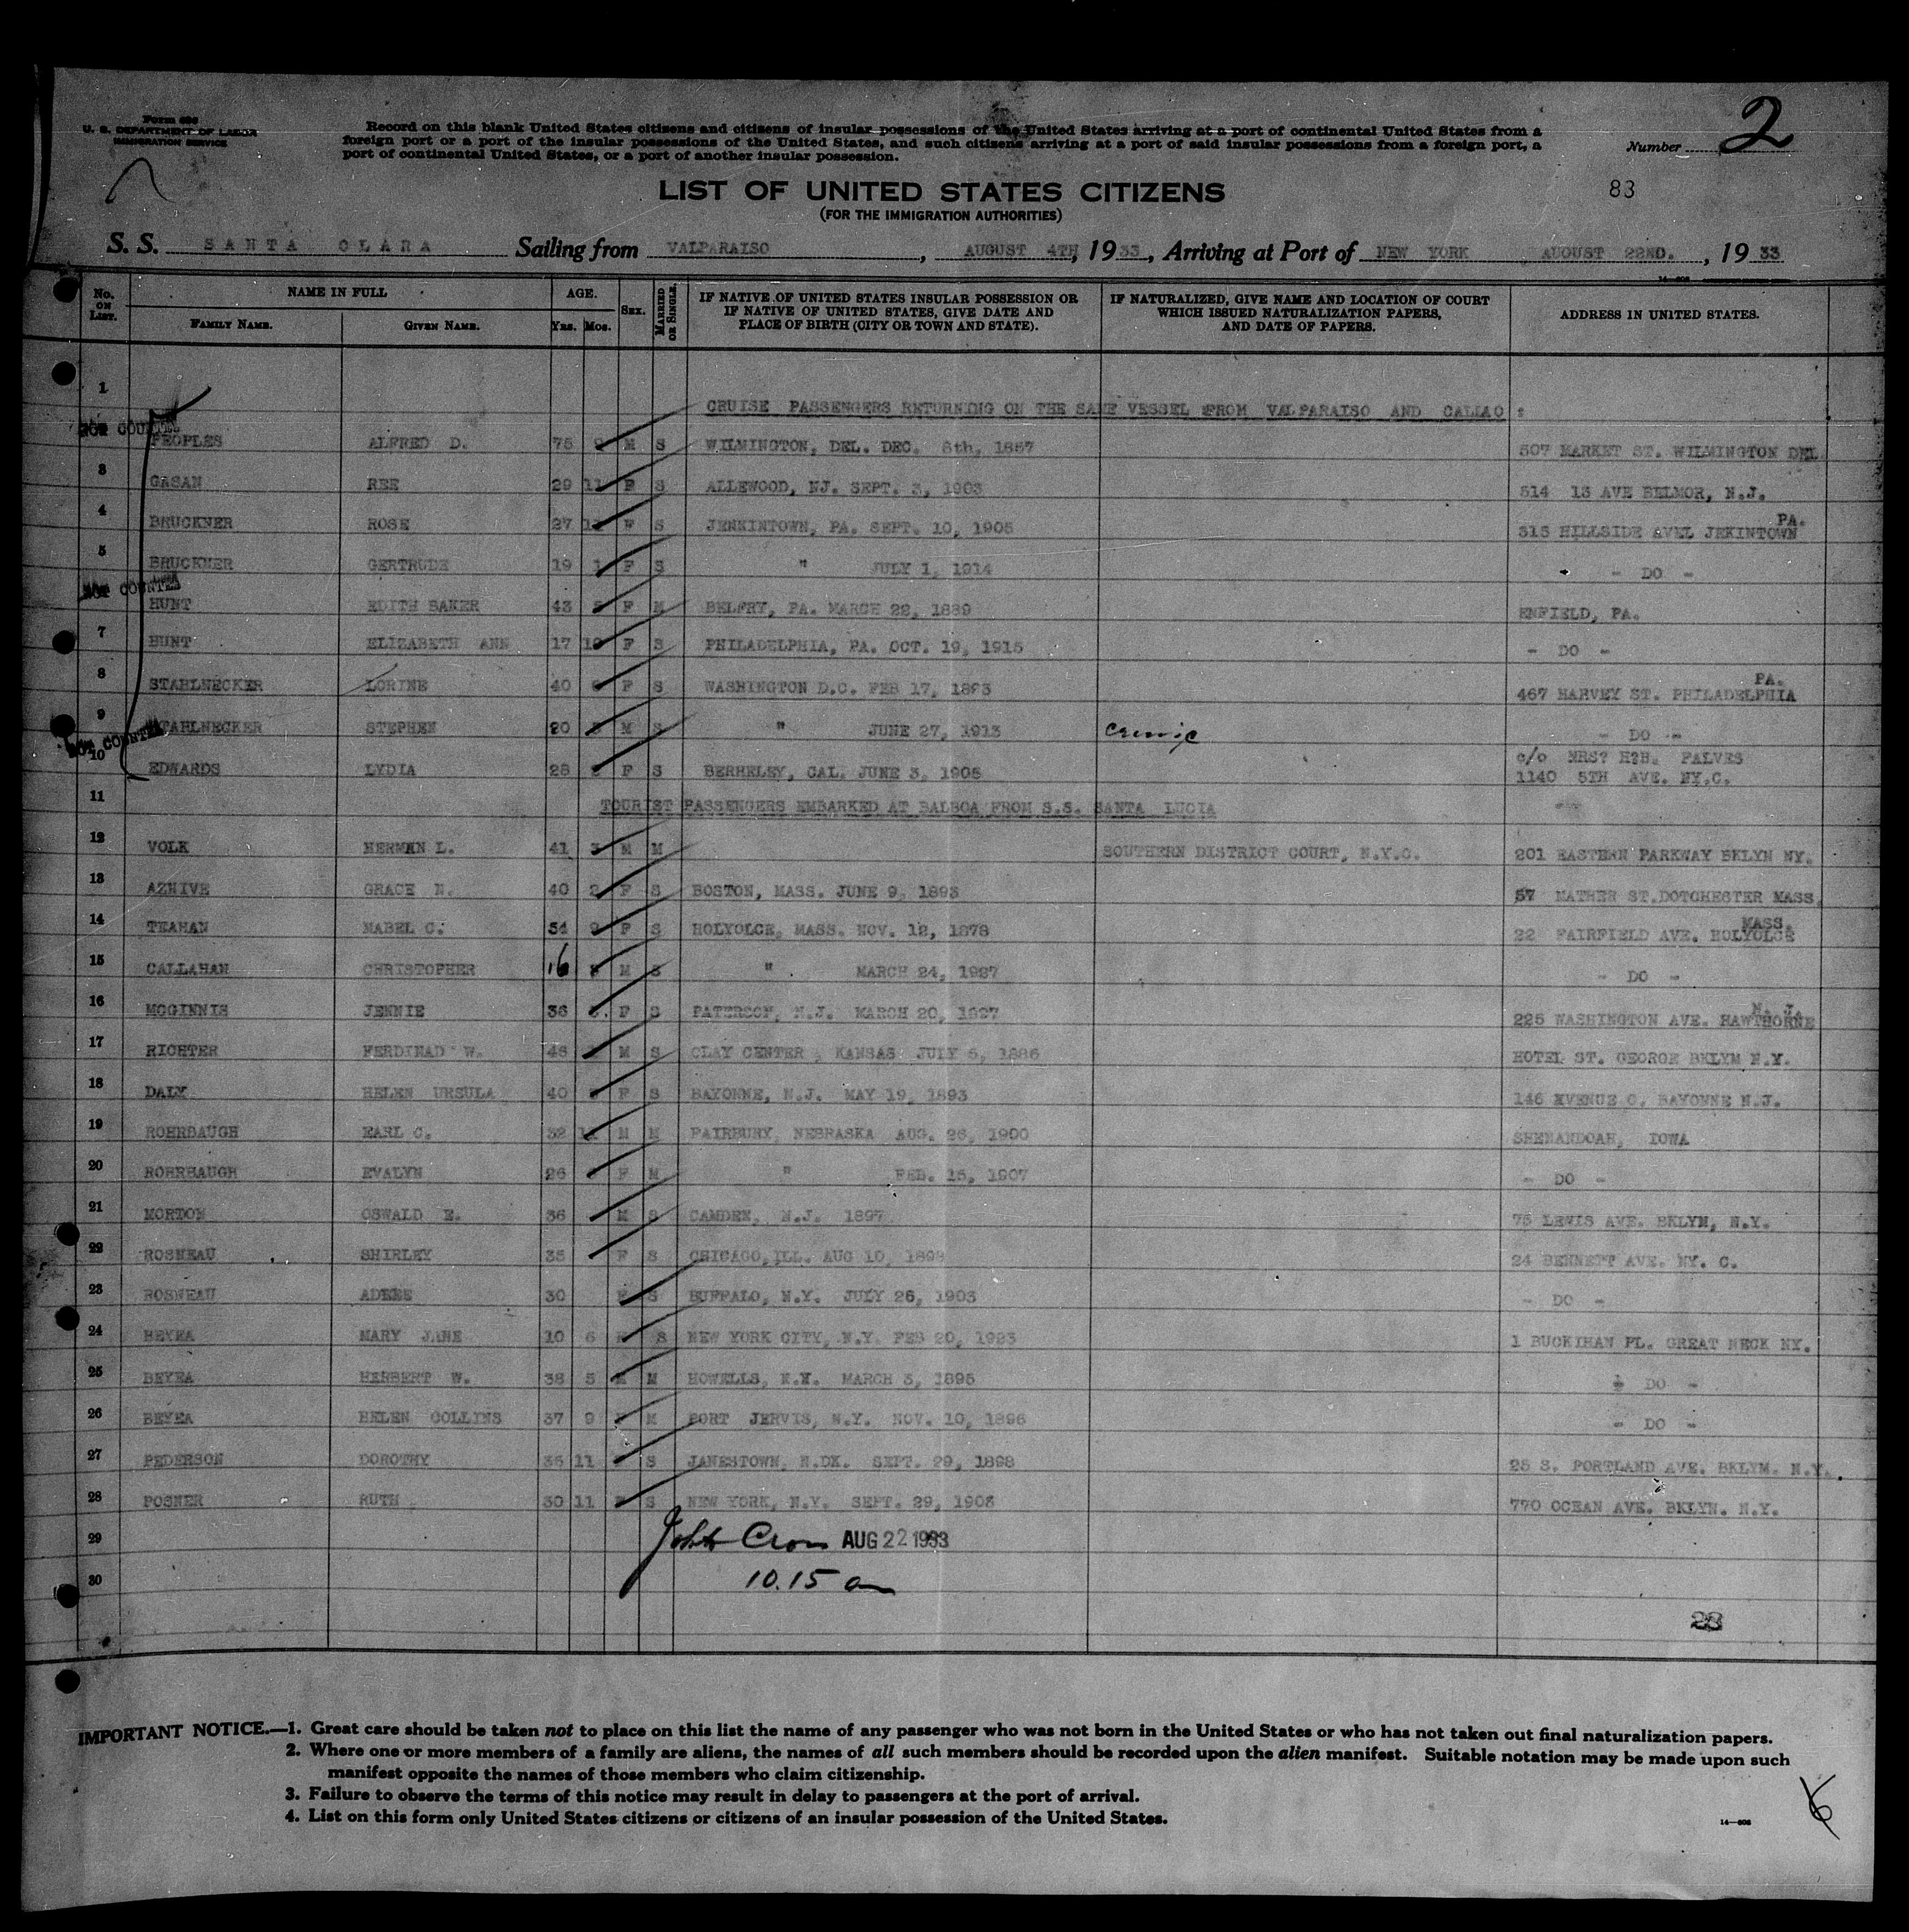 Form 630
U. S. DEPARTMENT OF LABOR
IMMIGRATION SERVICE
Record on this blank United States citizens and citizens of insular possessions of the United States arriving at a port of continental United States from a
foreign port or a port of the insular possessions of the United States, and such citizens arriving at a port of said insular possessions from a foreign port, a
port of continental United States, or a port of another insular possession.
Number 2
LIST OF UNITED STATES CITIZENS
83
(FOR THE IMMIGRATION AUTHORITIES)
S. S. SANTA CLARA Sailing from VALPARAISO, AUGUST 4TH, 1933, Arriving at Port of NEW YORK AUGUST 22ND., 1933
No. ON LIST. NAME IN FULL AGE. Sex. MARRIED OR SINGLE. IF NATIVE OF UNITED STATES INSULAR POSSESSION OR IF NATIVE OF UNITED STATES, GIVE DATE AND PLACE OF BIRTH (CITY OR TOWN AND STATE). IF NATURALIZED, GIVE NAME AND LOCATION OF COURT WHICH ISSUED NATURALIZATION PAPERS, AND DATE OF PAPERS. ADDRESS IN UNITED STATES.
FAMILY NAME. GIVEN NAME. Yrs. Mos.
1
CRUISE PASSENGERS RETURNING ON THE SAME VESSEL FROM VALPARAISO AND CALLAO :
NOT COUNTED
PEOPLES ALFRED D. 75 M S WILMINGTON, DEL. DEC. 8th, 1857 507 MARKET ST. WILMINGTON DEL
3 GASAN REE 29 11 F S ALLEWOOD, NJ. SEPT. 3, 1903 514 13 AVE BELMOR, N.J.
4 BRUCKNER ROSE 27 F S JENKINTOWN, PA. SEPT. 10, 1905 315 HILLSIDE AVEL JEKINTOWN PA.
5 BRUCKNER GERTRUDE 19 1 F S " JULY 1, 1914 - DO -
NOT COUNTED
HUNT EDITH BAKER 43 F M BELFRY, PA. MARCH 22, 1889 ENFIELD, PA.
7 HUNT ELIZABETH ANN 17 10 F S PHILADELPHIA, PA. OCT. 19, 1915 - DO -
8 STAHLNECKER LORINE 40 F S WASHINGTON D.C. FEB 17, 1893 467 HARVEY ST. PHILADELPHIA PA.
9 STAHLNECKER STEPHEN 20 M S " JUNE 27, 1913 - DO -
NOT COUNTED
10 EDWARDS LYDIA 28 F S BERHELEY, CAL. JUNE 3, 1905 c/o MRS? H?H. PALVES
1140 5TH AVE. NY.C.
11 TOURIST PASSENGERS EMBARKED AT BALBOA FROM S.S. SANTA LUCIA
12 VOLK HERMAN L. 41 M M SOUTHERN DISTRICT COURT, N.Y.C. 201 EASTERN PARKWAY BKLYN NY.
13 AZHIVE GRACE N. 40 2 F S BOSTON, MASS. JUNE 9, 1893 57 MATHER ST.DOTCHESTER MASS.
14 TEAHAN MABEL C. 54 9 F S HOLYOLCE, MASS. NOV. 12, 1878 22 FAIRFIELD AVE. HOLYOLCE MASS.
15 CALLAHAN CHRISTOPHER 16 M S " MARCH 24, 1927 - DO -
16 MCGINNIS JENNIE 36 F S PATERSON, N.J. MARCH 20, 1897 225 WASHINGTON AVE. HAWTHORNE N. J.
17 RICHTER FERDINAD W. 46 M S CLAY CENTER, KANSAS JULY 6, 1886 HOTEL ST. GEORGE BKLYM N.Y.
18 DALY HELEN URSULA 40 F S BAYONNE, N.J. MAY 19, 1893 146 AVENUE C. BAYONNE N.J.
19 ROHRBAUGH EARL C. 32 11 M M FAIRBURY, NEBRASKA AUG. 26, 1900 SHENANDOAH, IOWA
20 ROHRBAUGH EVALYN 26 F M " FEB. 15, 1907 - DO -
21 MORTON OSWALD E. 36 M S CAMDEN, N.J. 1897 75 LEWIS AVE. BKLYN, N.Y.
22 ROSNEAU SHIRLEY 35 F S CHICAGO,ILL. AUG 10, 1898 24 BENNETT AVE. NY. C.
23 ROSNEAU ADELE 30 F S BUFFALO, N.Y. JULY 26, 1903 - DO -
24 BEYEA MARY JANE 10 6 S NEW YORK CITY, N.Y. FEB 20, 1923 1 BUCKIHAN PL. GREAT NECK NY.
25 BEYEA HERBERT W. 38 5 M M HOWELLS, N.Y. MARCH 3, 1895 - DO -
26 BEYEA HELEN COLLINS 37 9 F M PORT JERVIS, N.Y. NOV. 10, 1896 - DO -
27 PEDERSON DOROTHY 35 11 S JANESTOWN, N.DK. SEPT. 29, 1898 25 S. PORTLAND AVE. BKLYM. N.Y.
28 POSNER RUTH 30 11 F S NEW YORK, N.Y. SEPT. 29, 1903 770 OCEAN AVE. BKLYN. N.Y.
29 AUG 22 1933
30 10.15 am
23
IMPORTANT NOTICE.—1. Great care should be taken not to place on this list the name of any passenger who was not born in the United States or who has not taken out final naturalization papers.
2. Where one or more members of a family are aliens, the names of all such members should be recorded upon the alien manifest. Suitable notation may be made upon such
manifest opposite the names of those members who claim citizenship.
3. Failure to observe the terms of this notice may result in delay to passengers at the port of arrival.
4. List on this form only United States citizens or citizens of an insular possession of the United States.